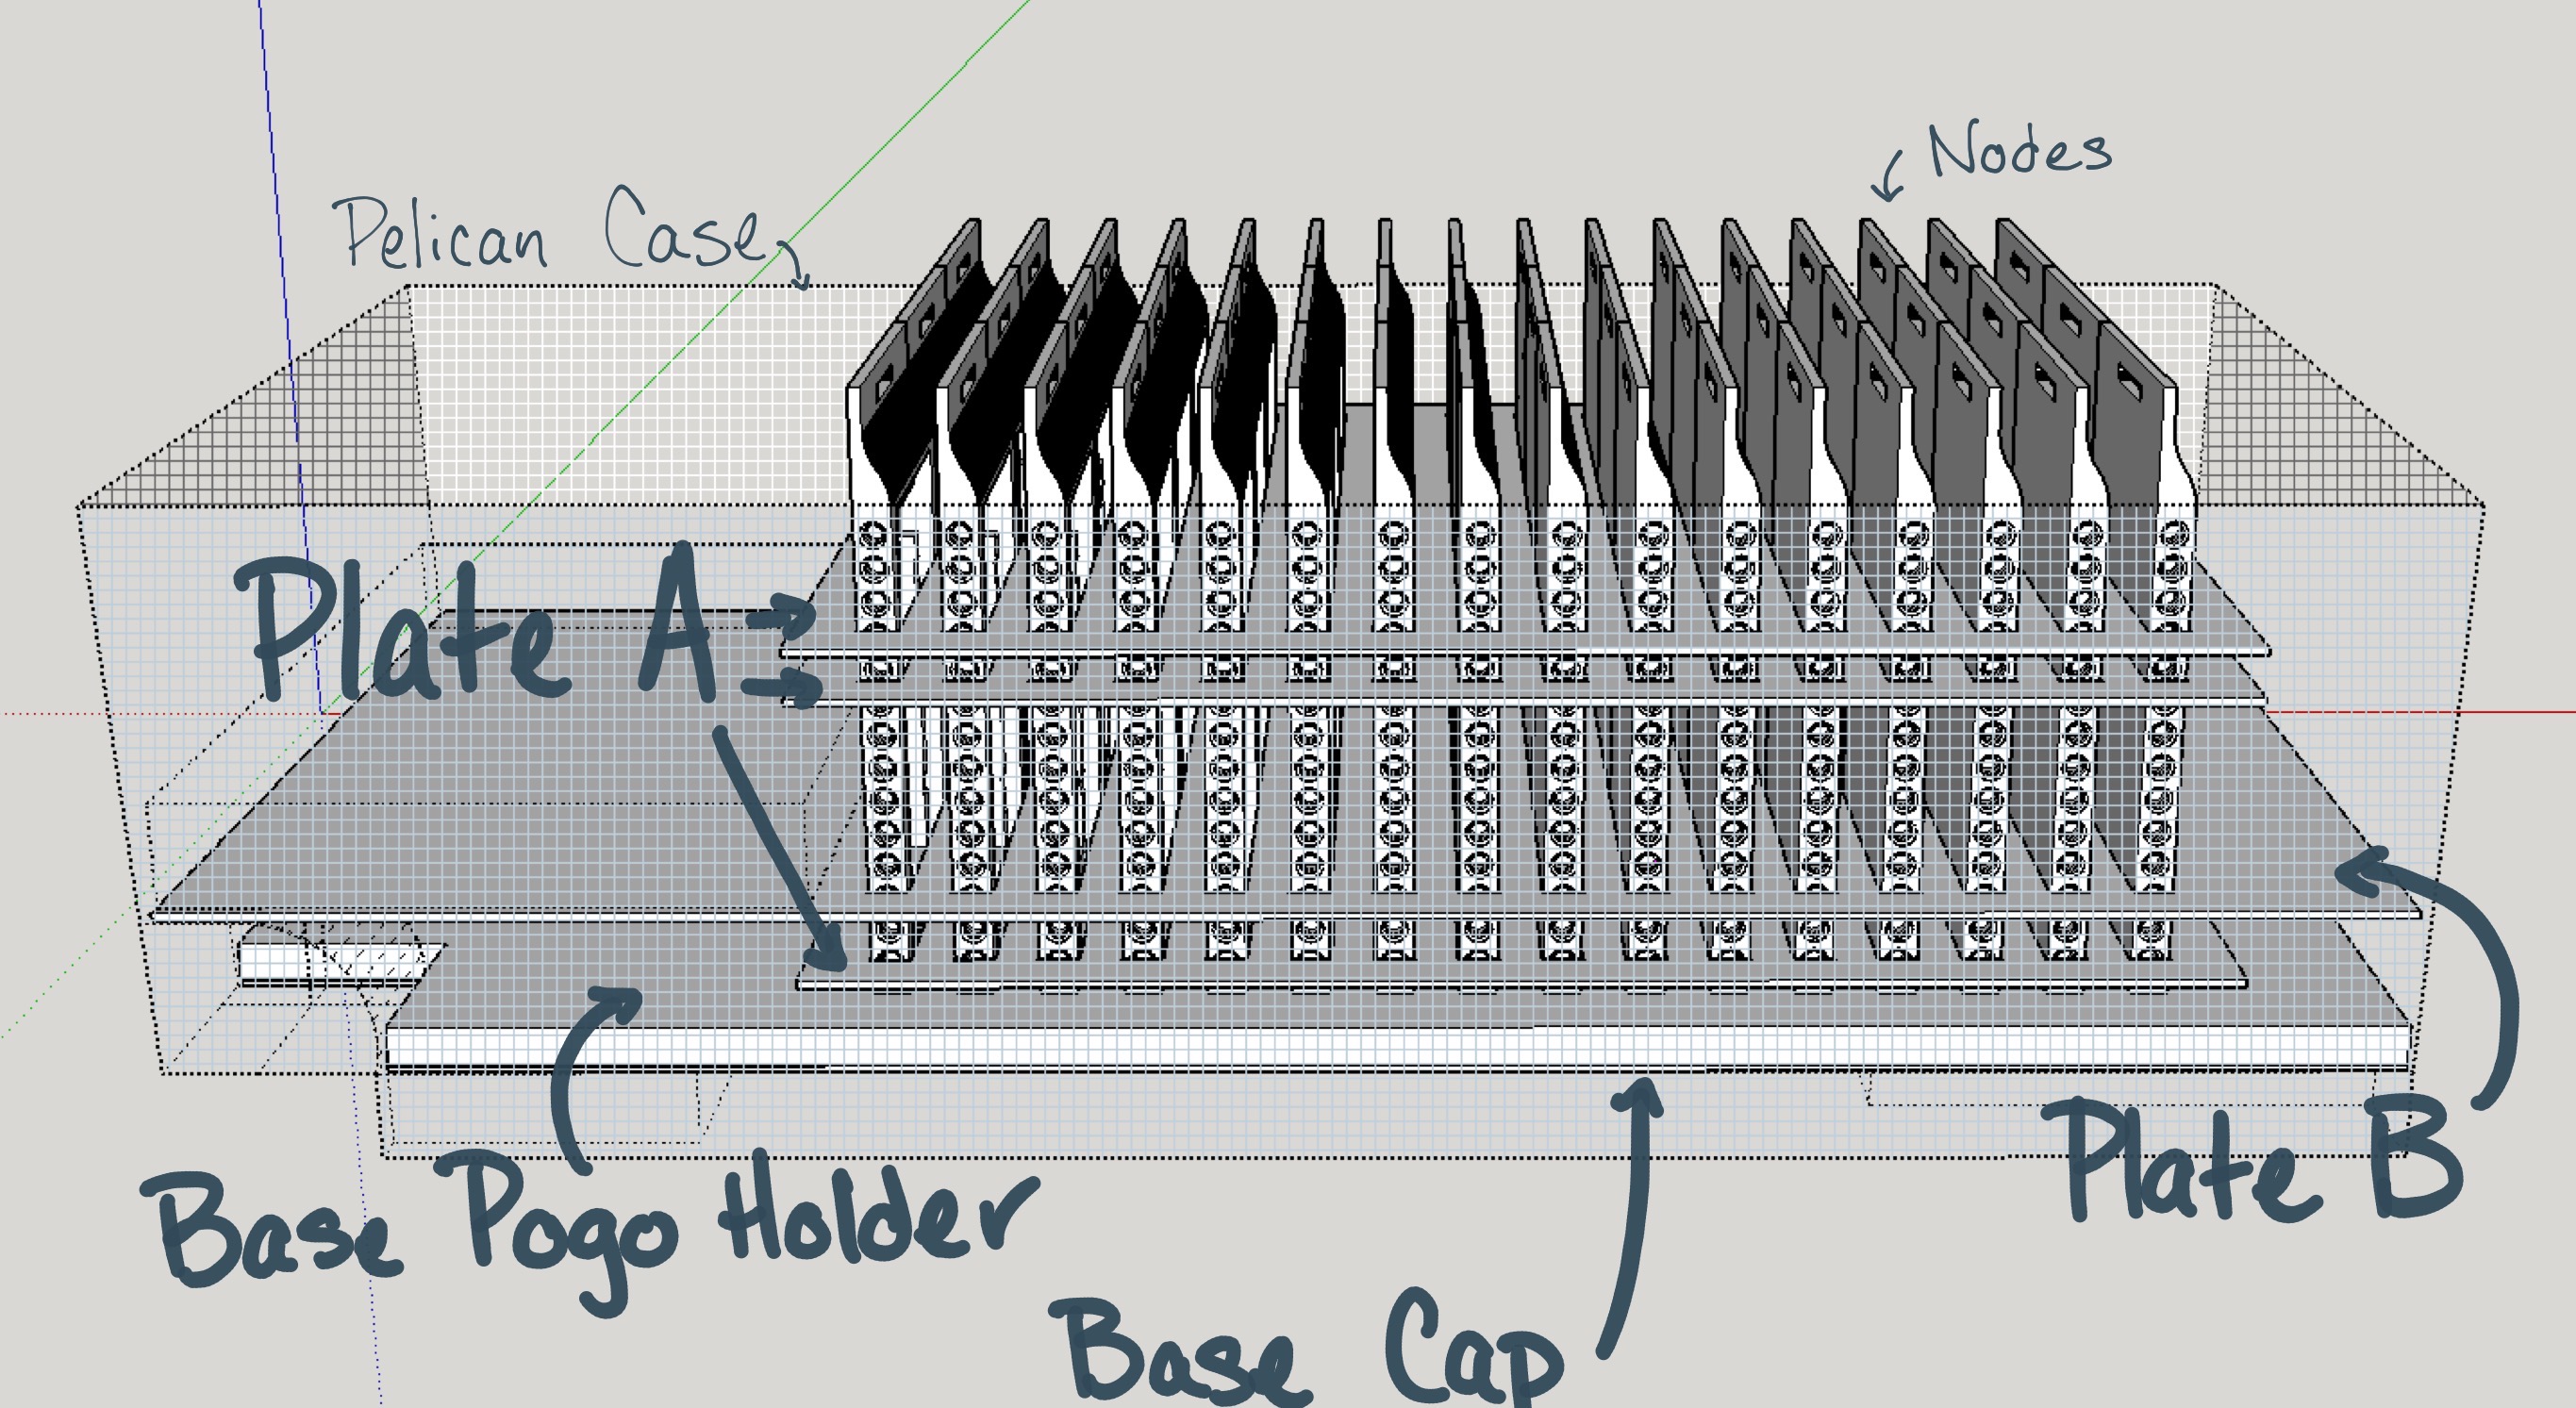 Nodes
Pelican Case
Plate A
Plate B
Base Pogo Holder
Base Cap